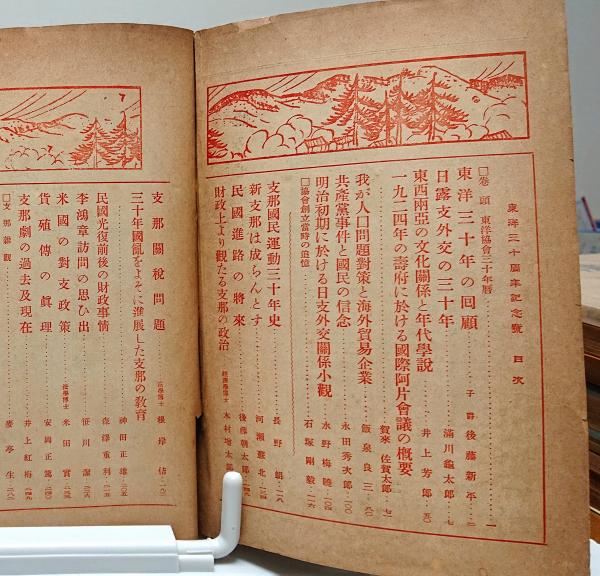 東洋三十周年記念號 目次
□卷頭 東洋協會三十年曆……一
東洋三十年の回顧……子爵 後藤新平…二
日露支外交の三十年……滿川龜太郎…七
東西兩亞の文化關係と年代學說……井上芳郎…五〇
一九二四年の壽府に於ける國際阿片會議の概要……賀來佐賀太郎…七一
我が人口問題對策と海外貿易企業……飯泉良三…八〇
共產黨事件と國民の信念……永田秀次郎…一〇〇
明治初期に於ける日支外交關係小觀……水野梅曉…一〇四
□協會創立當時の追憶……石塚剛毅…一一六
支那國民運動三十年史……長野朗…一一八
新支那は成らんとす……河瀨蘇北
民國進路の將來……後藤朝太郎
財政上より觀たる支那の政治……經濟學博士 木村增太郎
支那關稅問題……法學博士 根岸佶
三十年國亂をよそに進展した支那の敎育……神田正雄
民國光復前後の財政事情……森澤重利
李鴻章訪問の思ひ出……笹川潔
米國の對支政策……法學博士 米田實
貨殖傳の眞理……安岡正篤
支那劇の過去及現在……井上紅梅
□支那雜觀……麥亭生